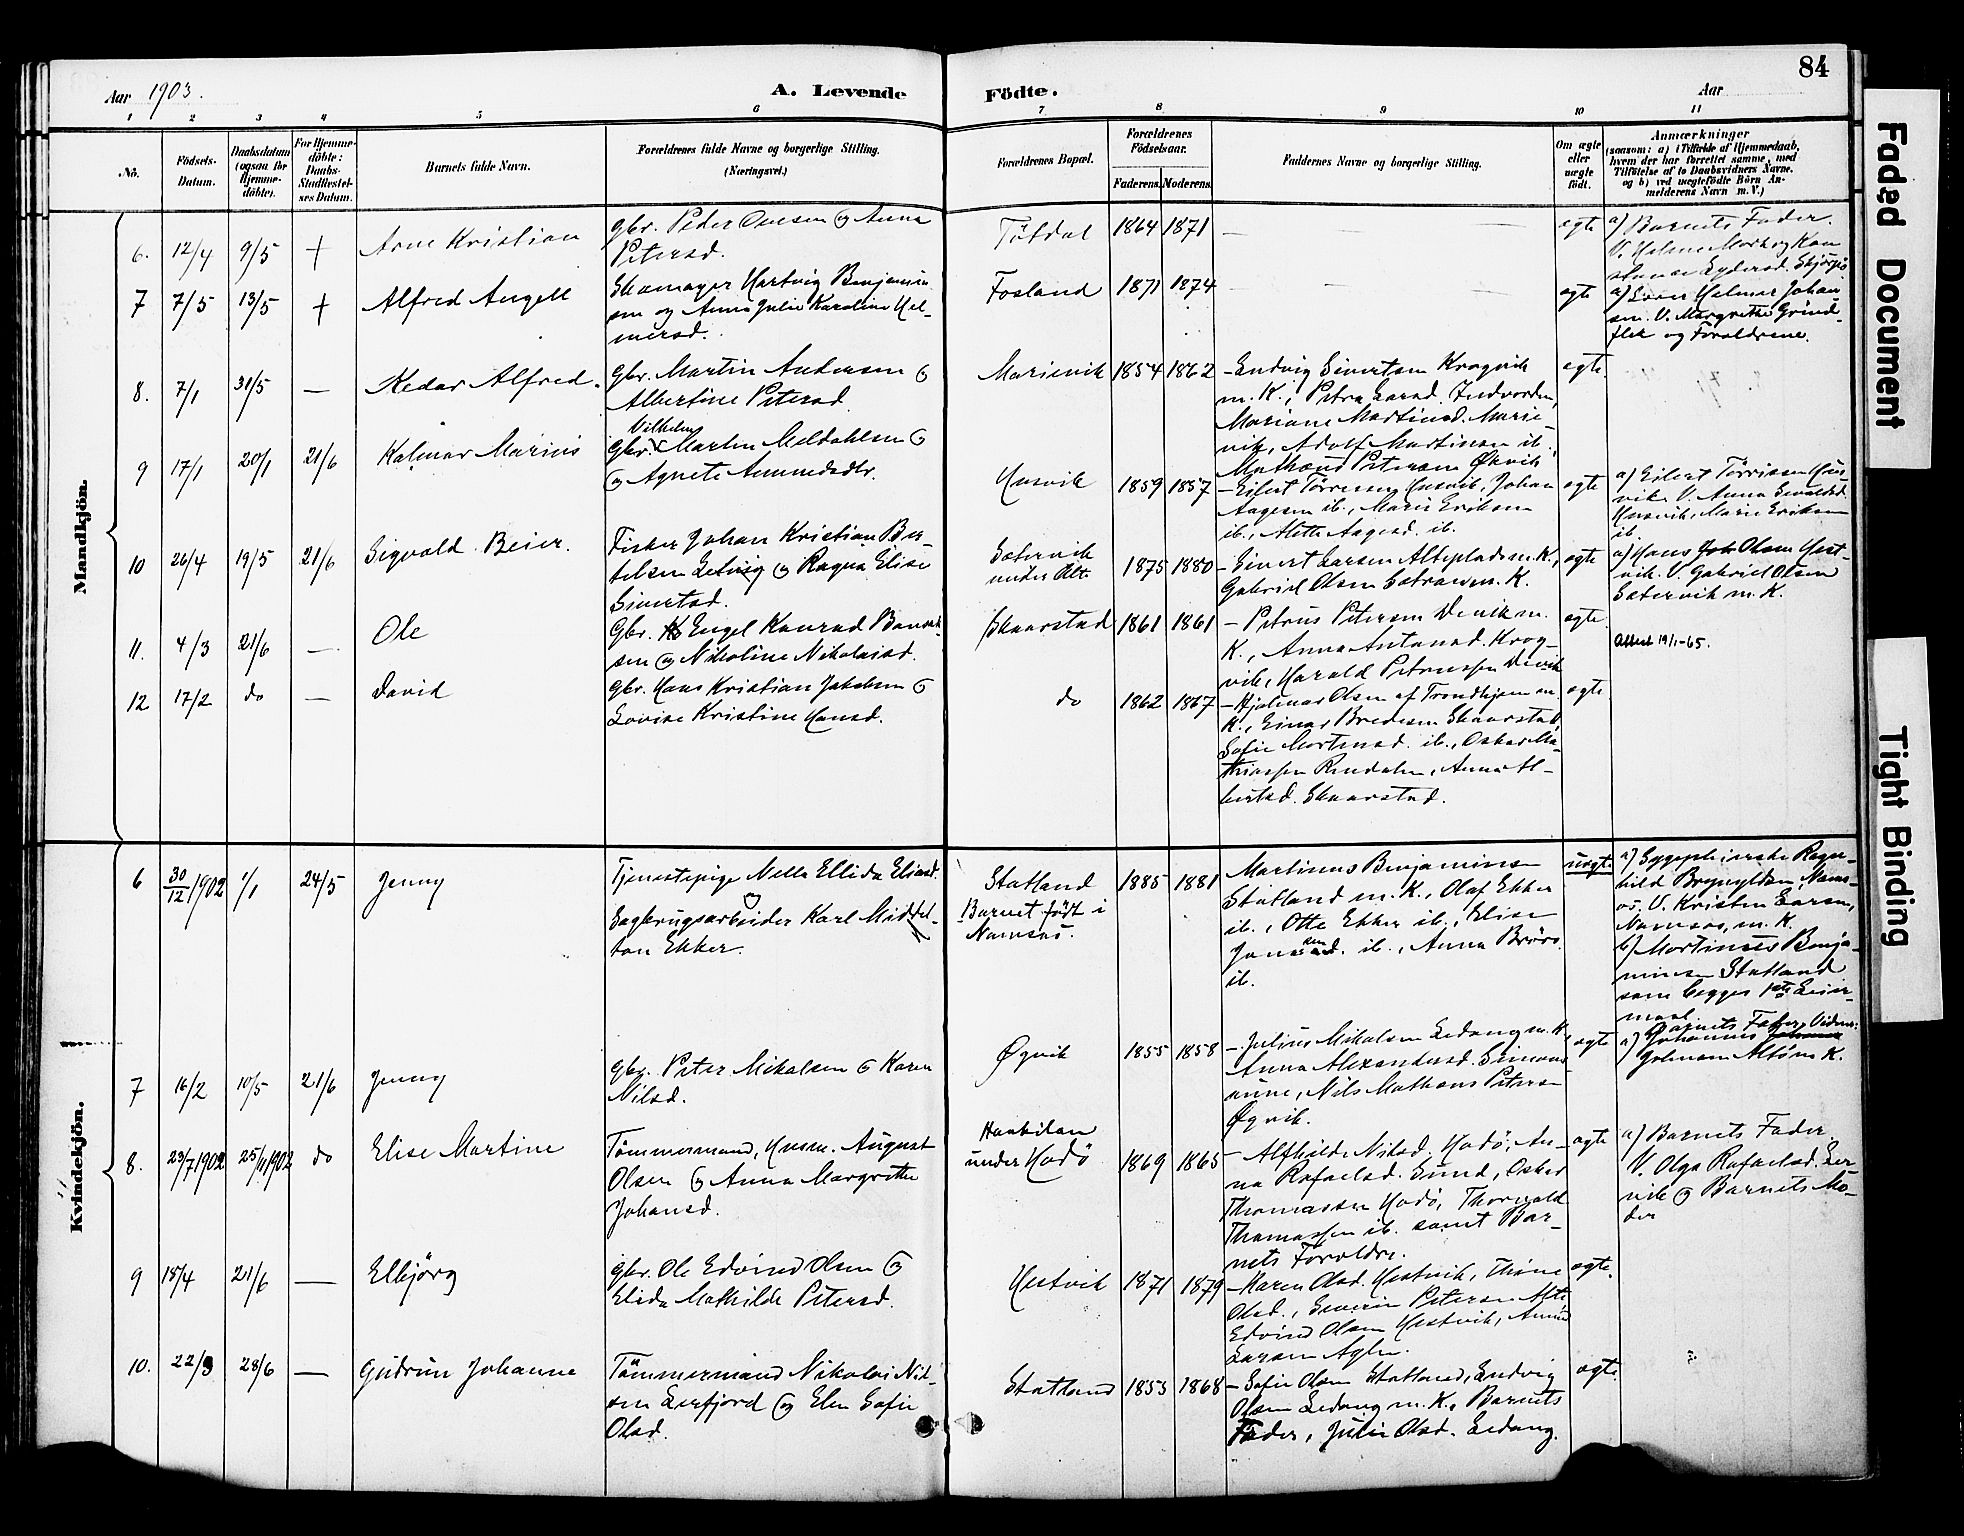 84
Aar 1903.
A. Levende Födte.
Aar
1 2 3 4 5 6 7 8 9 10 11
No.
Födsels-
Datum.
Daabsdatum
(ogsaa for
Hjemme-
döbte).
For Hjemme-
döbte:
Daabs-
Stadfæstel-
ses Datum.
Barnets fulde Navn.
Forældrenes fulde Navne og borgerlige Stilling.
(Næringsvei.)
Forældrenes Bopæl.
Forældrenes
Födselsaar.
Faderens.
Moderens.
Faddernes Navne og borgerlige Stilling.
Om ægte
eller
uægte
født.
Anmærkninger
(saasom: a) i Tilfælde af Hjemmedaab,
hvem der har forrettet samme, med
Tilføielse af to Daabsvidners Navne.
og b) ved uægtefödte Börn An-
melderens Navn m. V.)
Mandkjön.
6. 12/4 9/5 + Arne Kristian
gbr. Peder Ovesen og Anna
Petersd.
Tötdal 1864 1871 — — ægte
a) Barnets Fader.
7 7/5 13/5 + Alfred Angell
Skomager Hartvig Benjamin
sen og Anna Julie Karoline Hel-
mersd.
Fosland 1871 1874 — — ægte
a) Helmer Johan
sen. V. Margrethe Grind-
flek og Forældrene.
8. 7/1 31/5 — Kedar Alfred.
gbr. Martin Andersen og
Albertine Petersd.
Marienvik 1854 1862
— Ludvig Sivertsen Krogvik
m. K., Petra Larsd. Indvorden,
Mariane Martinsd. Marie-
vik, Adolf Martinsen ib.,
Petersen Økvik
ægte.
9 17/1 20/1 21/6 Kalmar Marius
Vilhelm
gbr. Martin Meldahlsen og
Agnete Ammedsdtr.
Husvik 1859 1857
— Eilert Törresen Husvik, Johan
Aagesen ib., Marie Eriksen
ib., Mette Aagesd. ib.
ægte
a) Eilert Törrissen Hus-
vik. V. Anna
Husvik, Marie Eriksen
ib.
10 26/4 19/5 21/6 Sigvald Beier.
Fisker Johan Kristian Ber-
telsen og Ragna Elise
Sivertsd.
Sætervik
under Alte
1875 1880
— Sivert Larsen Altepladsen m. K.,
Gabriel Olsen m. K.
ægte
a) Hans Joh Olsen Hest-
vik. V. Gabriel Olsen
Sætervik m. K.
11. 4/3 21/6 — Ole
Gbr. Engel Konrad
sen og Nikoline Nikolaisd.
Skaarstad 1861 1861
— Petrus Petersen Devik m.
K., Anna Antonsd. Krog-
vik, Harald Petersen Devik
ægte.
19/1-65.
12 17/2 do — David
gbr. Hans Kristian Jakobsen og
Lovise Kristine Hansd.
do 1862 1867
— Hjalmar Olsen af Trondhjem m.
K., Einar Bredesen Skaarstad,
Sofie Mortensd. ib., Oskar Ma-
thiassen Rendalen, Anna Al-
bertsd. Skaarstad.
ægte.
Kvindekjön.
6 30/12 1902 1/1 24/5 Jenny
Tjenestepige Nella Ellida Eliasd.
og
Sagbrugsarbeider Karl Middel-
ton Ekker.
Statland
Barnet født i
Namsos.
1885 1881
Martinus Benjaminsen
Statland m. K., Olaf Ekker
ib., Otte Ekker ib., Elise
ib., Anna Brörs
ib.
uægte.
a) Sygepleierske Ragn-
hild Brynildsen, Nams-
os. V. Kristen Larsen,
Namsos, m. K.
b) Martinus Benja-
minsen Statland
som begges 1ste Leier-
maal.
7 16/2 10/5 21/6 Jenny
gbr. Peter Mikalsen og Karen
Nilsd.
Øgvik 1855 1858
— Julius Mikalsen Ledang m. K.
Anna Alexandersd.
Nils Mathæus Petersen
Øgvik.
ægte
Barnets Fader, Vidner:
a) Johannes
8. 23/7 1902 25/11 1902 do Elise Martine
Tömmermand, Husm. August
Olsen og Anna Margrethe
Johansd.
under Hodö
1869 1865
— Alfhild Nilsd. Hodö, An-
na Rafaelsd. Sund, Oskar
Thomassen Hodö, Thorvald
Thomassen ib. samt Bar-
nets Forældre.
ægte
a) Barnets Fader.
V. Olga Rafaelsd. Ler-
vik og Barnets Mo-
der
9 18/4 21/6 — Elbjörg
gbr. Ole Edvind Olsen og
Elida Mathilde Petersd.
Hestvik 1871 1879
— Maren Olsd. Hestvik, Thine
Olsd., Severin Petersen Alte
Edvind Olsen Hestvik,
Larsen
ægte.
10. 22/3 28/6 — Gudrun Johanne
Tömmermand Nikolai Nil-
sen Lerfjord og Elen Sofie
Olsd.
Statland 1853 1868
— Sofie Olsen Statland, Ludvig
Olsen Ledang m. K., Barnets
Fader, Julie Olsd. Ledang.
ægte.
Faded Document
Tight Binding